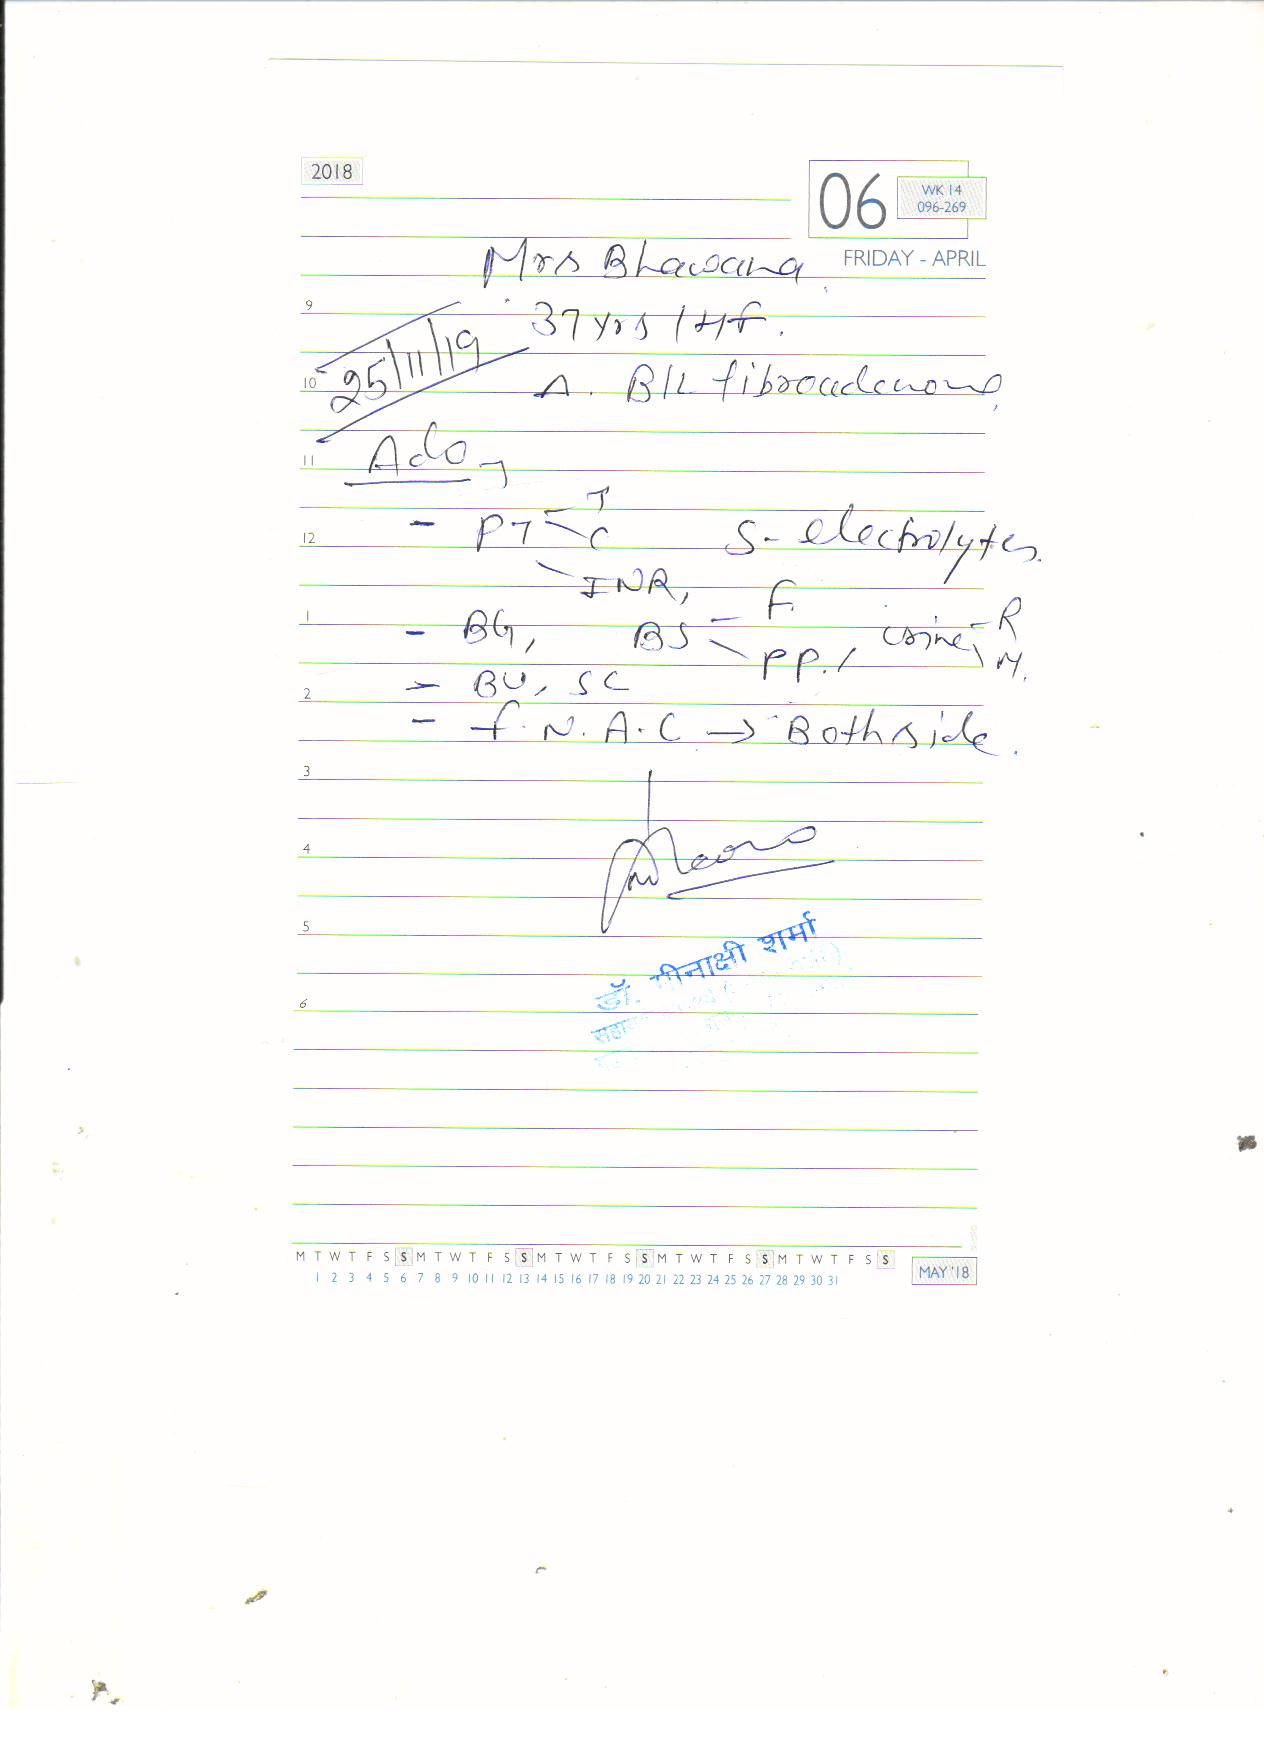 2018
06
WK 14
096-269
FRIDAY - APRIL
Mrs Bhawana
9
37 yrs / H/F.
25/11/19
10
Δ. B/L fibroadenoma,
11
Adv
12
- PT - T
C
INR,
S-electrolytes.
1
- BG, BS - F
PP. / urine, - R
M.
2
- BU, SC
- F.N.A.C → Both side.
3
4
5
डॉ. मीनाक्षी शर्मा
6
M T W T F S S M T W T F S S M T W T F S S M T W T F S S M T W T F S S
1 2 3 4 5 6 7 8 9 10 11 12 13 14 15 16 17 18 19 20 21 22 23 24 25 26 27 28 29 30 31
MAY '18